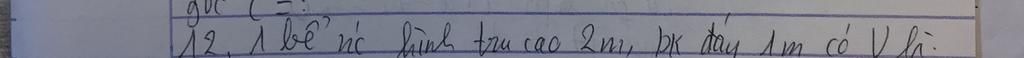 góc C = ?
12, 1 bể nc hình trụ cao 2m, bk đáy 1m có V là: